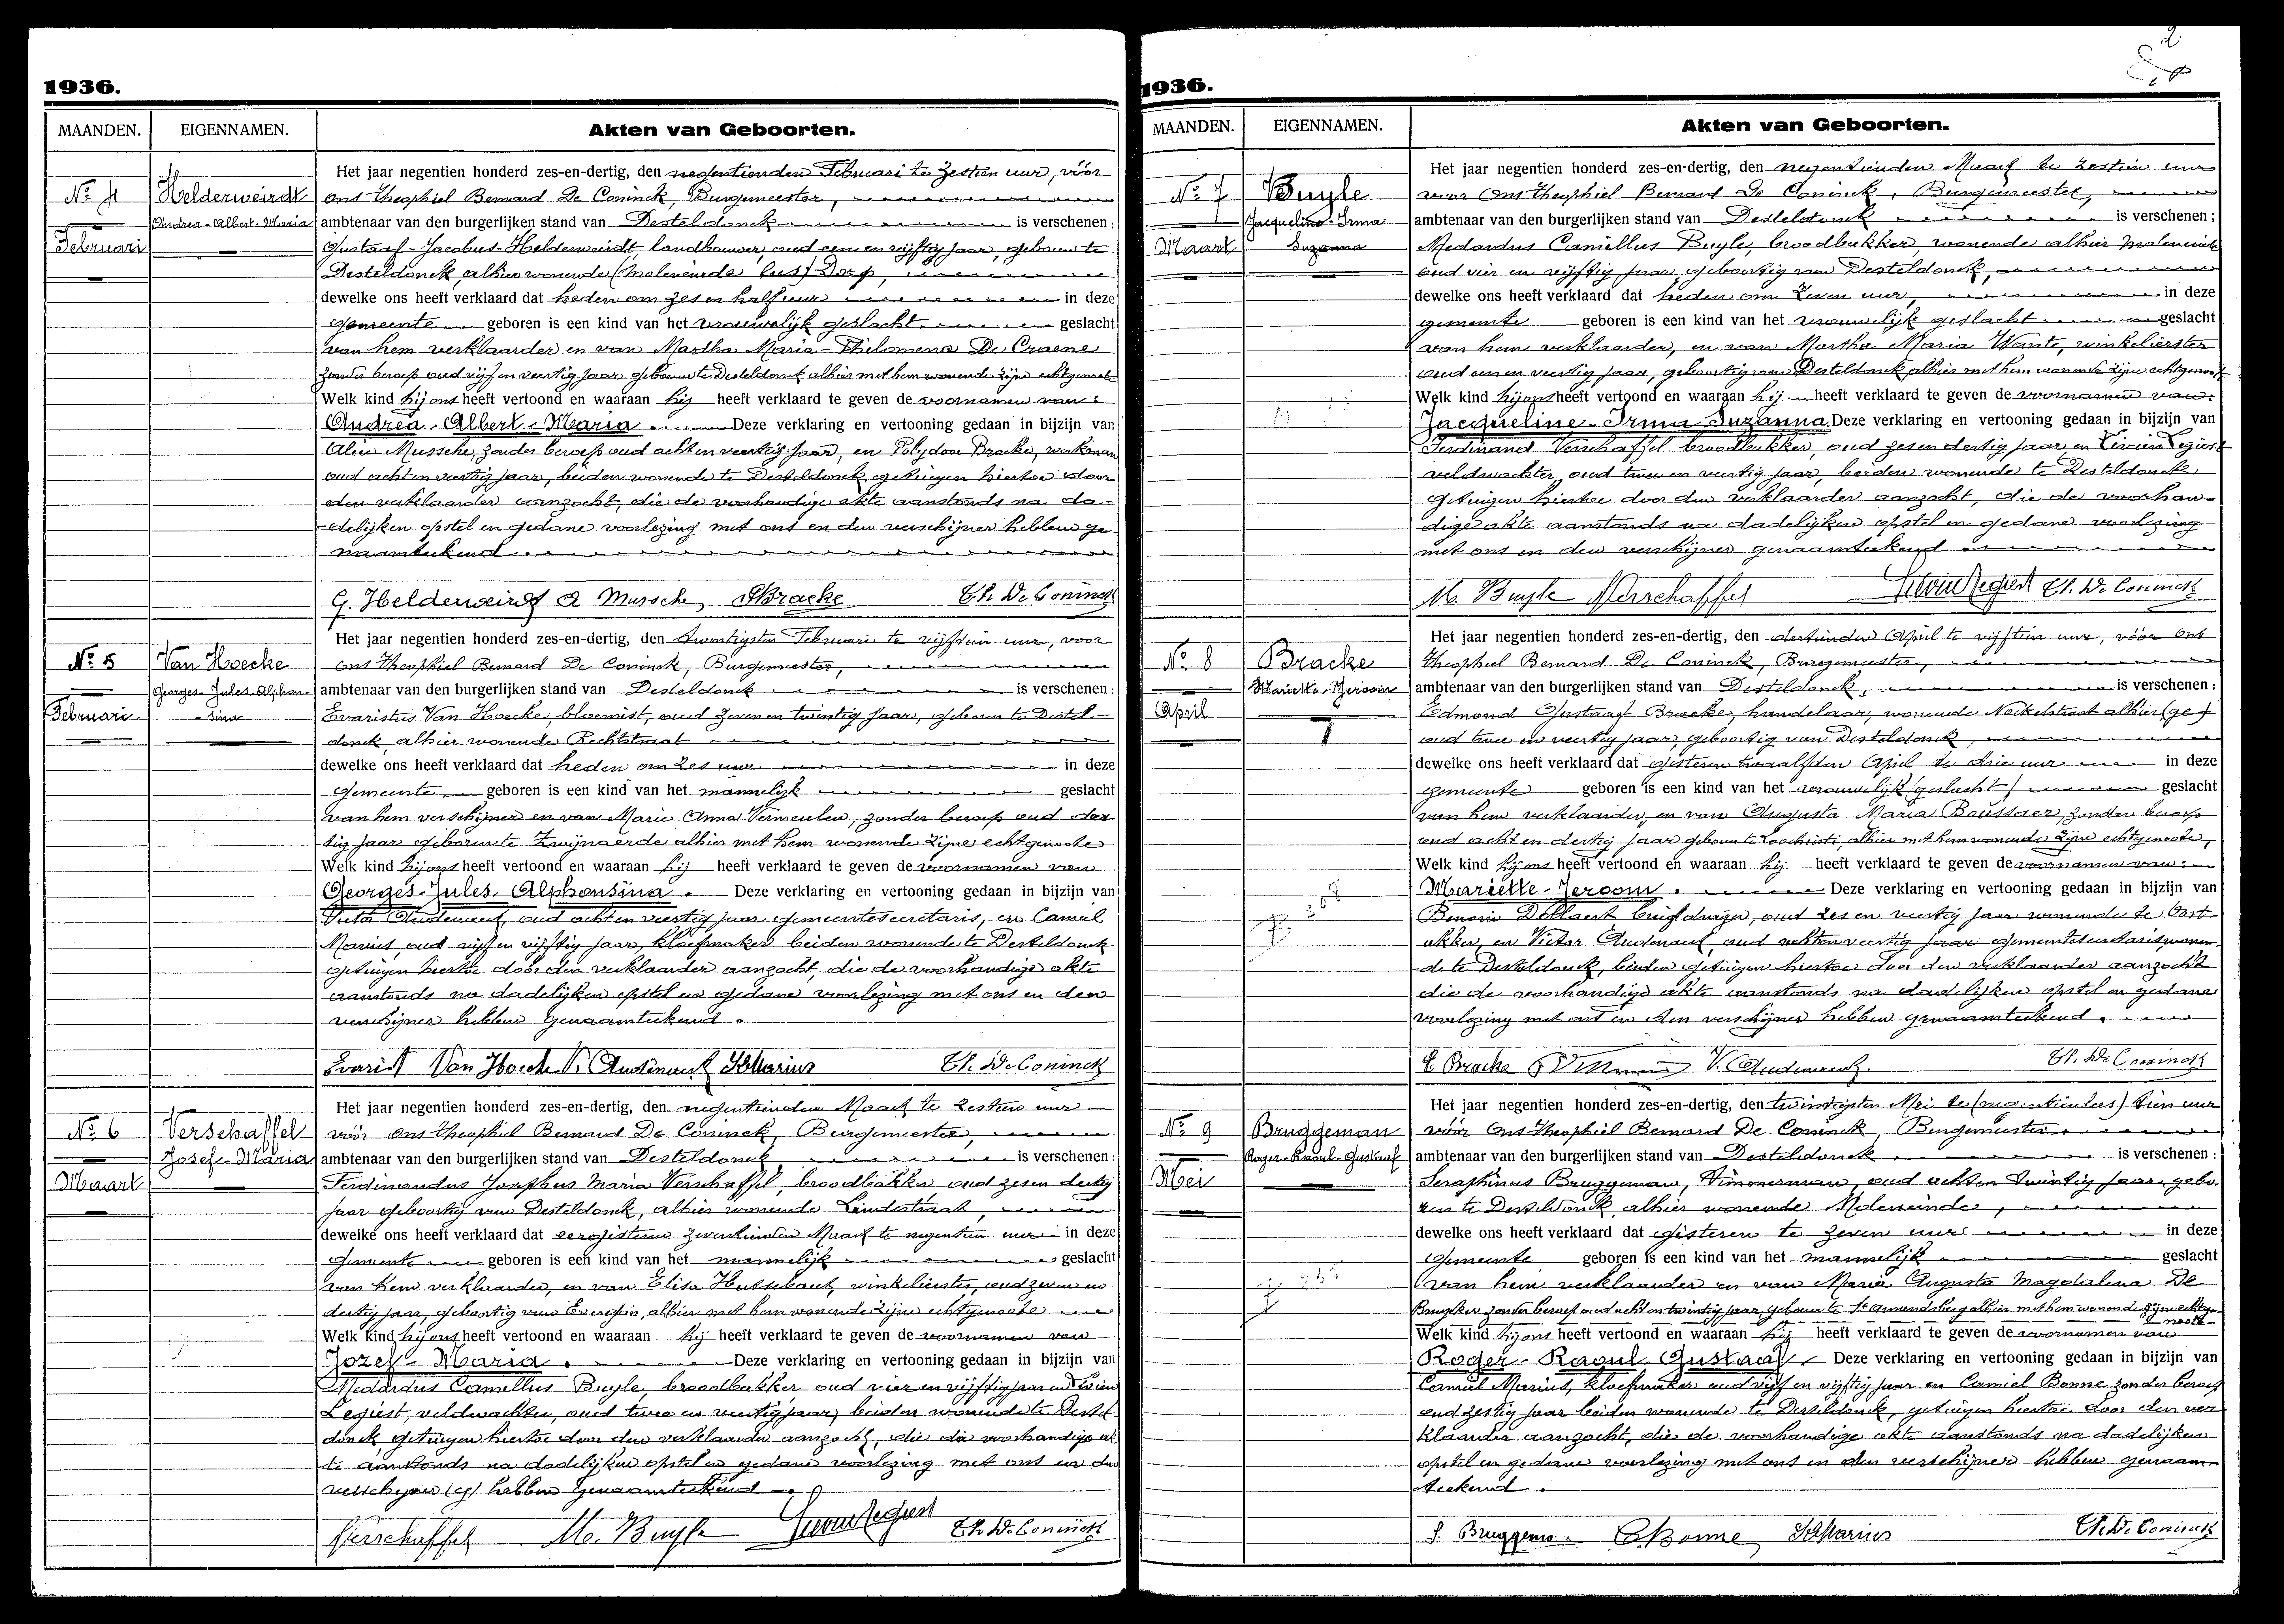 1936.
MAANDEN. EIGENNAMEN. Akten van Geboorten.
Het jaar negentien honderd zes-en-dertig, den negentienden Februari te zestien uur, vóór
No 4 Helderweirdt ons Theophiel Bernard De Coninck, Burgemeester,
Andrea-Albert-Maria ambtenaar van den burgerlijken stand van Desteldonck is verschenen:
Februari Gustaaf-Jacobus Helderweirdt, landbouwer, oud een en vijftig jaar, geboren te
Desteldonck, alhier wonende (Moleneinde lus) Dorp,
dewelke ons heeft verklaard dat heden om zes en half uur in deze
gemeente geboren is een kind van het vrouwelijk geslacht geslacht
van hem verklaarder en van Martha Maria-Philomena De Craene
zonder beroep oud vijf en veertig jaar geboren te Desteldonck alhier met hem wonende zijne echtgenoote
Welk kind hij ons heeft vertoond en waaraan hij heeft verklaard te geven de voornamen van:
Andrea-Albert-Maria. Deze verklaring en vertooning gedaan in bijzijn van
Alice Mussche, zonder beroep oud acht en veertig jaar, en Polydoor Bracke, werkman
oud acht en veertig jaar, beiden wonende te Desteldonck, getuigen hiertoe door
den verklaarder aanzocht, die de voorhandige akte aanstonds na da-
-delijken opstel en gedane voorlezing met ons en den verschijner hebben ge-
naamteekend.
G. Helderweirdt A Mussche PBracke Th. De Coninck
Het jaar negentien honderd zes-en-dertig, den twintigsten Februari te vijftien uur, voor
No 5 Van Hoecke ons Theophiel Bernard De Coninck, Burgemeester,
Georges-Jules-Alphon- ambtenaar van den burgerlijken stand van Desteldonck is verschenen:
Februari -sina Evaristus Van Hoecke, bloemist, oud zeven en twintig jaar, geboren te Destel-
donck, alhier wonende Rechtstraat
dewelke ons heeft verklaard dat heden om zes uur in deze
gemeente geboren is een kind van het mannelijk geslacht
van hem verschijner en van Marie Anna Vermeulen, zonder beroep oud der-
tig jaar geboren te Zwijnaerde alhier met hem wonende zijne echtgenoote
Welk kind hij ons heeft vertoond en waaraan hij heeft verklaard te geven de voornamen van
Georges-Jules-Alphonsina. Deze verklaring en vertooning gedaan in bijzijn van
Victor Audenaert, oud acht en veertig jaar gemeentesecretaris, en Camiel
Marius, oud vijf en vijftig jaar, kloefmaker beiden wonende te Desteldonck
getuigen hiertoe door den verklaarder aanzocht, die de voorhandige akte
aanstonds na dadelijken opstel en gedane voorlezing met ons en den
verschijner hebben genaamteekend.
Evarist Van Hoecke V. Audenaert Marius Th. De Coninck
Het jaar negentien honderd zes-en-dertig, den negentienden Maart te zestien uur
No 6 Verschaffel vóór ons Theophiel Bernard De Coninck, Burgemeester,
Josef-Maria ambtenaar van den burgerlijken stand van Desteldonck is verschenen:
Maart Ferdinandus Josephus Maria Verschaffel, broodbakker, oud zes en dertig
jaar geboortig van Desteldonck, alhier wonende Lindestraat,
dewelke ons heeft verklaard dat eergisteren zeventienden Maart te negentien uur in deze
gemeente geboren is een kind van het mannelijk geslacht
van hem verklaarder, en van Elisa Hutsebaut, winkelierster, oud zeven en
dertig jaar, geboortig van Evergem, alhier met hem wonende zijne echtgenoote
Welk kind hij ons heeft vertoond en waaraan hij heeft verklaard te geven de voornamen van
Jozef-Maria. Deze verklaring en vertooning gedaan in bijzijn van
Medardus Camellus Buyle, broodbakker oud vier en vijftig jaar en Livien
Legiest, veldwachter, oud twee en veertig jaar, beiden wonende te Destel-
donck, getuigen hiertoe door den verklaarder aanzocht, die de voorhandige ak-
te aanstonds na dadelijken opstel en gedane voorlezing met ons en den
verschyner (y) hebben genaamteekend.
FVerschaffel M. Buyle Livien Legiest Th. De Coninck
2
1936.
MAANDEN. EIGENNAMEN. Akten van Geboorten.
Het jaar negentien honderd zes-en-dertig, den negentienden Maart te zestien uur
No 7 Buyle voor ons Theophiel Bernard De Coninck, Burgemeester,
Jacqueline-Irma ambtenaar van den burgerlijken stand van Desteldonck is verschenen;
Maart Suzanna Medardus Camiellus Buyle, broodbakker, wonende alhier Moleneinde
oud vier en vijftig jaar, geboortig van Desteldonck,
dewelke ons heeft verklaard dat heden om zeven uur, in deze
gemeente geboren is een kind van het vrouwelijk geslacht geslacht
van hem verklaarder, en van Martha Maria Wante, winkelierster
oud een en veertig jaar, geboortig van Desteldonck alhier met hem wonende zijne echtgenoote
Welk kind hij ons heeft vertoond en waaraan hij heeft verklaard te geven de voornamen van:
Jacqueline-Irma Suzanna. Deze verklaring en vertooning gedaan in bijzijn van
Ferdinand Verschaffel broodbakker, oud zes en dertig jaar en Livien Legiest
veldwachter, oud twee en veertig jaar, beiden wonende te Desteldonck
getuigen hiertoe door den verklaarder aanzocht, die de voorhan-
dige akte aanstonds na dadelijken opstel en gedane voorlezing
met ons en den verschijner genaamteekend
M. Buyle FVerschaffel Livien Legiest Th. De Coninck
Het jaar negentien honderd zes-en-dertig, den dertienden April te vijftien uur, vóór ons
No 8 Bracke Theophiel Bernard De Coninck, Burgemeester,
Mariette-Jeroom ambtenaar van den burgerlijken stand van Desteldonck, is verschenen:
April Edmond Gustaaf Bracke, handelaar, wonende Nokkelstraat alhier (ge)
oud twee en veertig jaar, geboortig van Desteldonck,
dewelke ons heeft verklaard dat gisteren twaalfden April te drie uur in deze
gemeente geboren is een kind van het vrouwelijk (geslacht) geslacht
van hem verklaarder, en van Augusta Maria Boussaer, zonder beroep
oud acht en dertig jaar geboren te Loochristi, alhier met hem wonende zijne echtgenoote,
Welk kind hij ons heeft vertoond en waaraan hij heeft verklaard te geven de voornamen van:
Mariette-Jeroom. Deze verklaring en vertooning gedaan in bijzijn van
Benoni briefdrager, oud zes en veertig jaar wonende te Oost-
akker, en Victor Audenaert, oud acht en veertig jaar gemeentesecretaris wonen-
de te Desteldonck, beiden getuigen hiertoe door den verklaarder aanzocht
die de voorhandige akte aanstonds na dadelijken opstel en gedane
voorlezing met ons en den verschijner hebben genaamteekend.
E Bracke V. Audenaert. Th. De Coninck
Het jaar negentien honderd zes-en-dertig, den twintigsten Mei te (negentien lees) tien uur
No 9 Bruggeman vóór ons Theophiel Bernard De Coninck, Burgemeester
Roger-Raoul-Gustaaf ambtenaar van den burgerlijken stand van Desteldonck is verschenen:
Mei Seraphinus Bruggeman, Timmerman, oud acht en twintig jaar, gebo-
ren te Desteldonck, alhier wonende Moleneinde,
dewelke ons heeft verklaard dat gisteren te zeven uur in deze
gemeente geboren is een kind van het mannelijk geslacht
van hem verklaarder en van Maria Augusta Magdalena De
zonder beroep oud acht en twintig jaar, geboren te St Amandsberg alhier met hem wonende zijne echtge-
noote
Welk kind hij ons heeft vertoond en waaraan hij heeft verklaard te geven de voornamen van
Roger-Raoul-Gustaaf Deze verklaring en vertooning gedaan in bijzijn van
Camiel Marius, kloefmaker oud vijf en vijftig jaar en Camiel Bonne zonder beroep
oud zestig jaar beiden wonende te Desteldonck, getuigen hiertoe door den ver-
klaarder aanzocht, die de voorhandige akte aanstonds na dadelijken
opstel en gedane voorlezing met ons en den verschijner hebben genaam-
teekend.
S. Bruggeman C. Bonne Marius Th. De Coninck